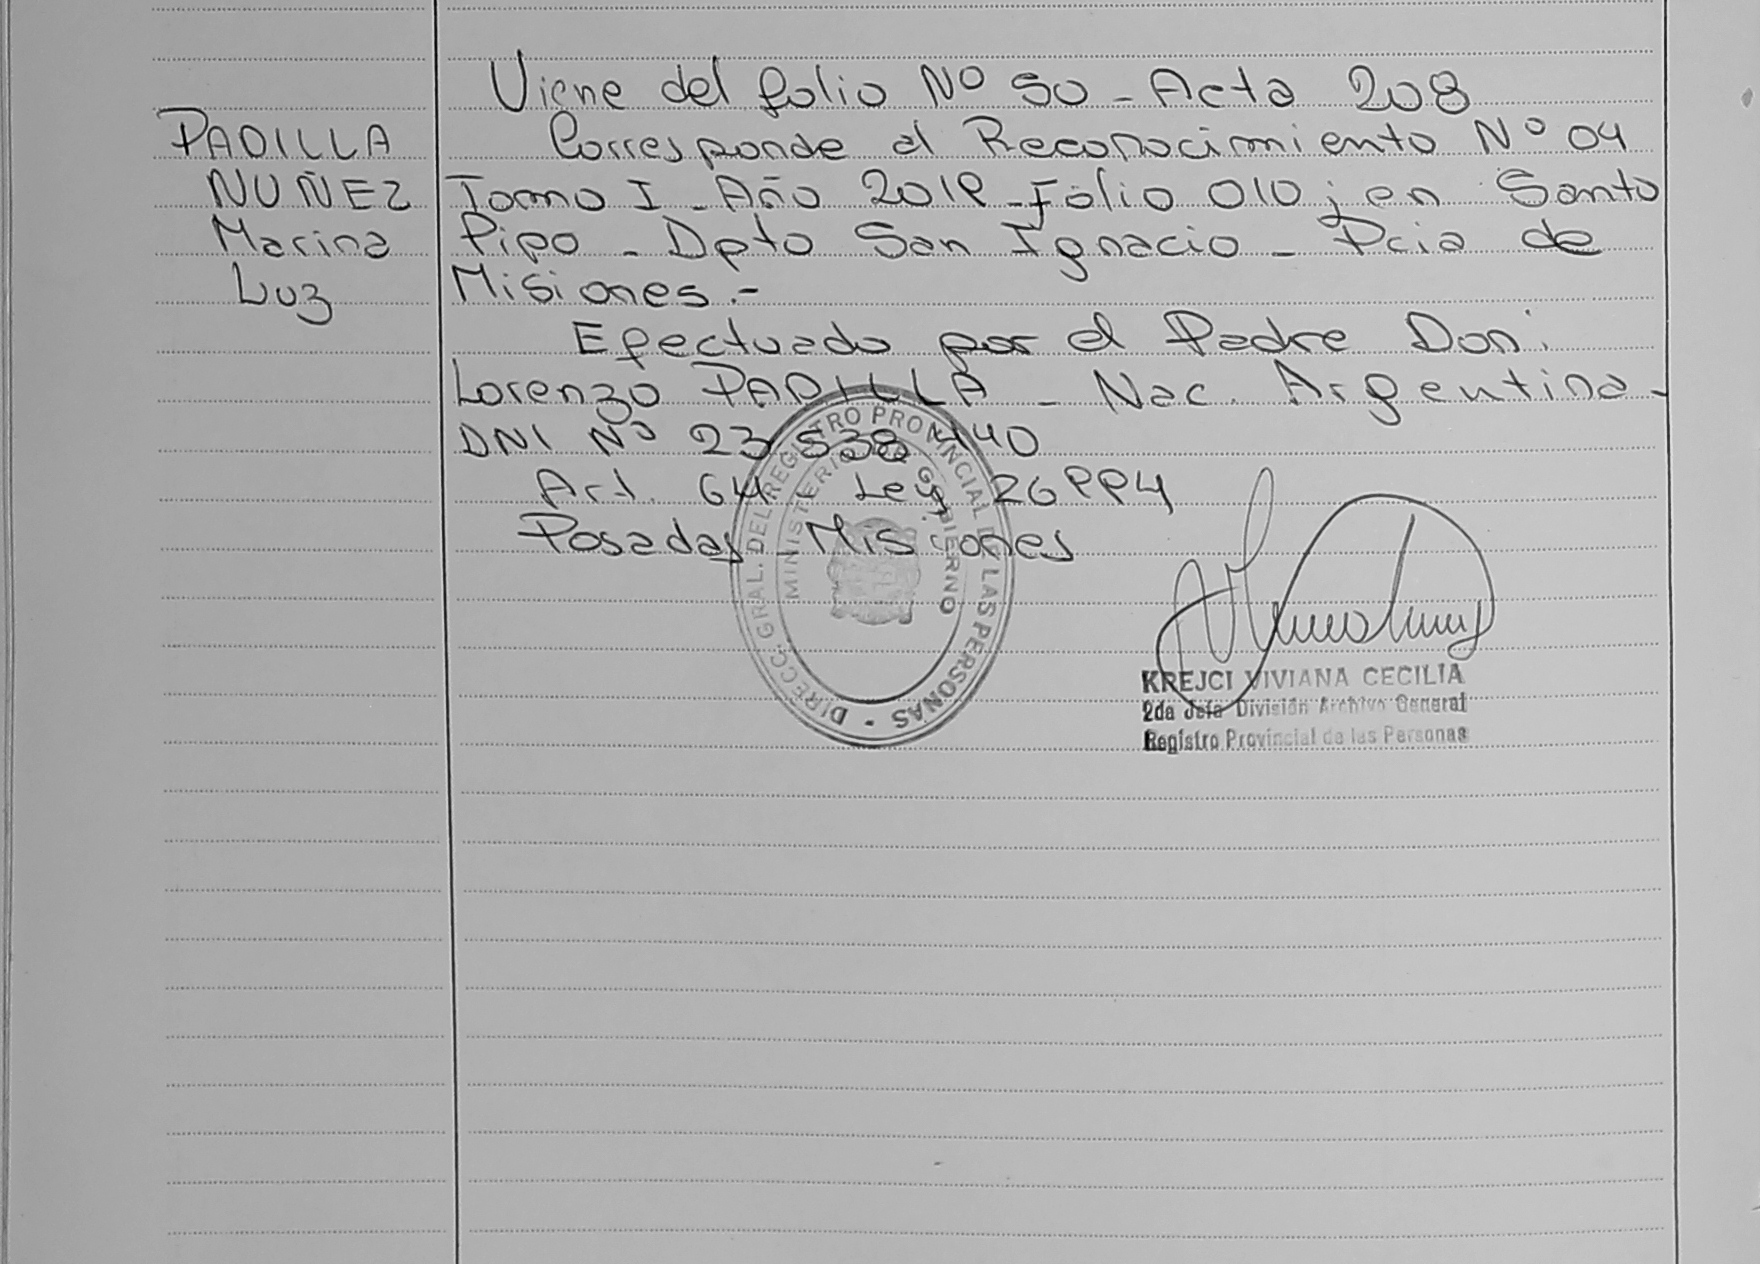 Viene del folio Nº 50 - Acta 208
PADILLA
NUÑEZ
Marina
Luz
Corresponde al Reconocimiento Nº 04
Tomo I - Año 2019 - Folio 010; en Santo
Pipo - Dpto San Ignacio - Pcia de
Misiones.-
Efectuado por el Padre Don:
Lorenzo PADILLA - Nac. Argentina -
DNI Nº 23 538 440
Art. 64 - Ley 26994
Posadas - Misiones
DIRECC. GRAL. DEL REGISTRO PROVINCIAL DE LAS PERSONAS
MINISTERIO DE GOBIERNO
KREJCI VIVIANA CECILIA
2da Jefa División Archivo General
Registro Provincial de las Personas